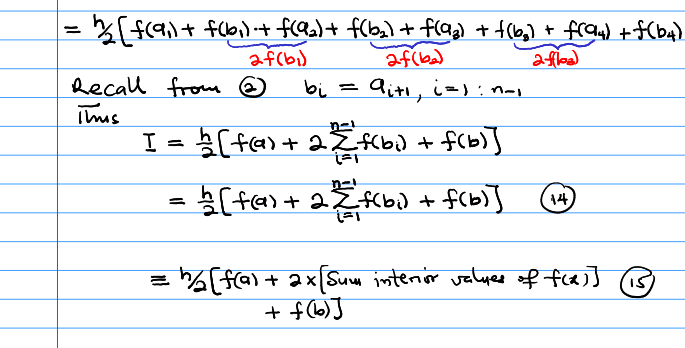 = h/2 [f(a₁) + f(b₁) + f(a₂) + f(b₂) + f(a₃) + f(b₃) + f(a₄) + f(b₄)
2f(b₁) 2f(b₂) 2f(b₃)
Recall from ② bᵢ = aᵢ₊₁, i=1 : n-1
Thus
I = h/2 [f(a) + 2 ∑ᵢ₌₁ⁿ⁻¹ f(bᵢ) + f(b)]
= h/2 [f(a) + 2 ∑ᵢ₌₁ⁿ⁻¹ f(bᵢ) + f(b)] ⑭
≡ h/2 [f(a) + 2x[Sum interior values of f(x)] ⑮
+ f(b)]